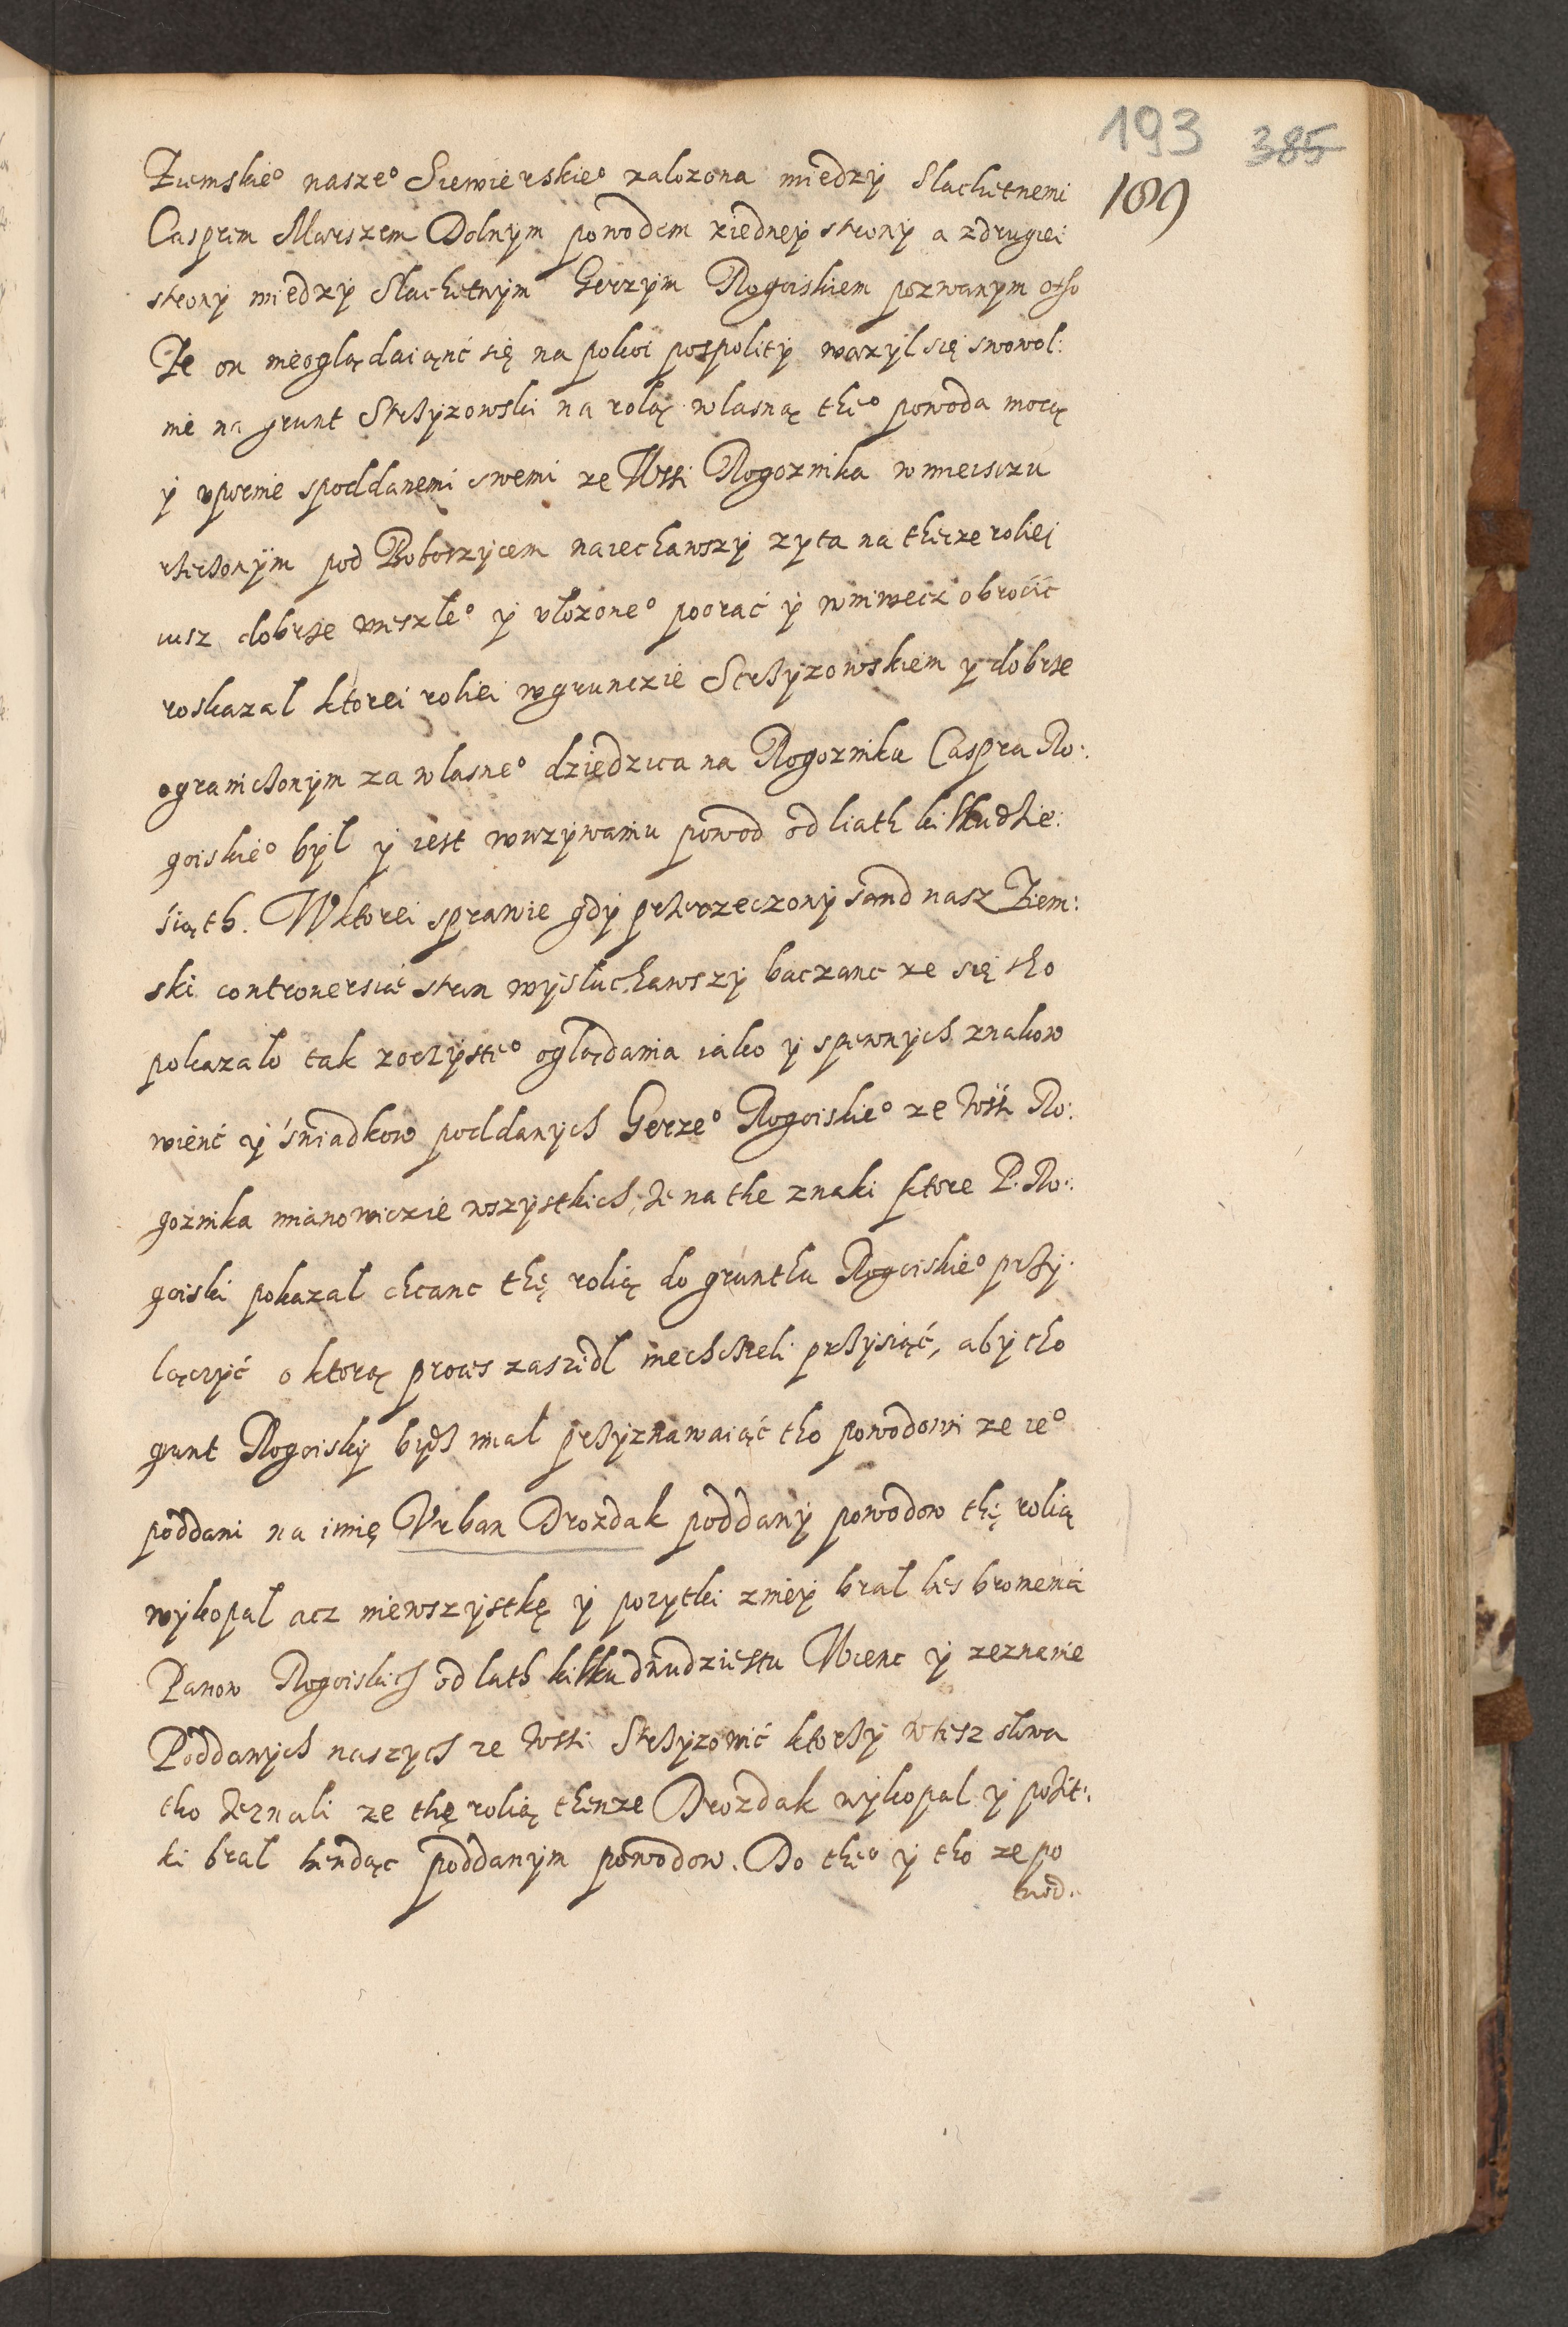 193 385
189
Ziemskieº naszeº Siewierskieº zalozona miedzÿ Slachetnemi
Casprem Marszem Dolnÿm powodem ziedneÿ stronÿ a zdrugiei
stronÿ miedzÿ Slachetnÿm Gerzÿm Rogoiskiem pozwanÿm otho
Ze on nieoglądaiąnć się na pokoi pospolitÿ wazÿl się swowol:
nie na grunt Strzÿzowski na rolą wlasną theº powoda mocą
ÿ vpornie spoddanemi swemi ze Wssi Rogoznika wmiesczu
rzeczonÿm pod Boborzÿcem naiechawszÿ zÿta na theize roliei
iusz dobrze weszleº ÿ vlozoneº poorać ÿ wniwecz obrocić
roskazal ktorei roliei wgrunczie Strzÿzowskiem ÿ dobrze
ograniczonÿm za wlasneº dziedzica na Rogozniku Caspra Ro:
goiskieº bÿl ÿ iest wuzÿwaniu powod od liath kilkudzie:
siąth. Wktorei sprawie gdÿ przerzeczonÿ sand nasz Ziem:
ski controuersie stron wÿsluchawszÿ baczanc ze się tho
pokazalo tak zoczÿsteº oglądania iako ÿ spewnÿch znakow
wienć ÿ świadkow poddanÿch Gerzeº Rogoiskieº ze wssi Ro:
goznika mianowiczie wszÿstkich, ze na the znaki ktore P. Ro:
goiski pokazal chcanc thę rolią do grunthu Rogoiskieº przÿ:
lączÿć o ktorą proces zaszedl niechcieli przÿsiąć, abÿ tho
grunt Rogoiskÿ bÿdz mial przÿznawaiąć tho powodowi ze ieº
poddani na imię Vrban Drozdak poddanÿ powodow thę rolią
wÿkopal acz niewszÿstkę ÿ pozÿtki znieÿ bral bes bronienia
Panow Rogoiskich od lath kilkudnudziestu Wienc ÿ zeznanie
Poddanÿch naszÿch ze wssi Strzÿzowić ktorzÿ wtesz slowa
tho zeznali ze thę rolią thenze Drozdak wÿkopal ÿ pozit:
ki bral bendąc poddanÿm powodow. Do theº ÿ tho ze po
wod: